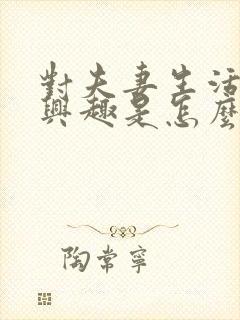 對夫妻生活
興趣是怎麼
陶常寧